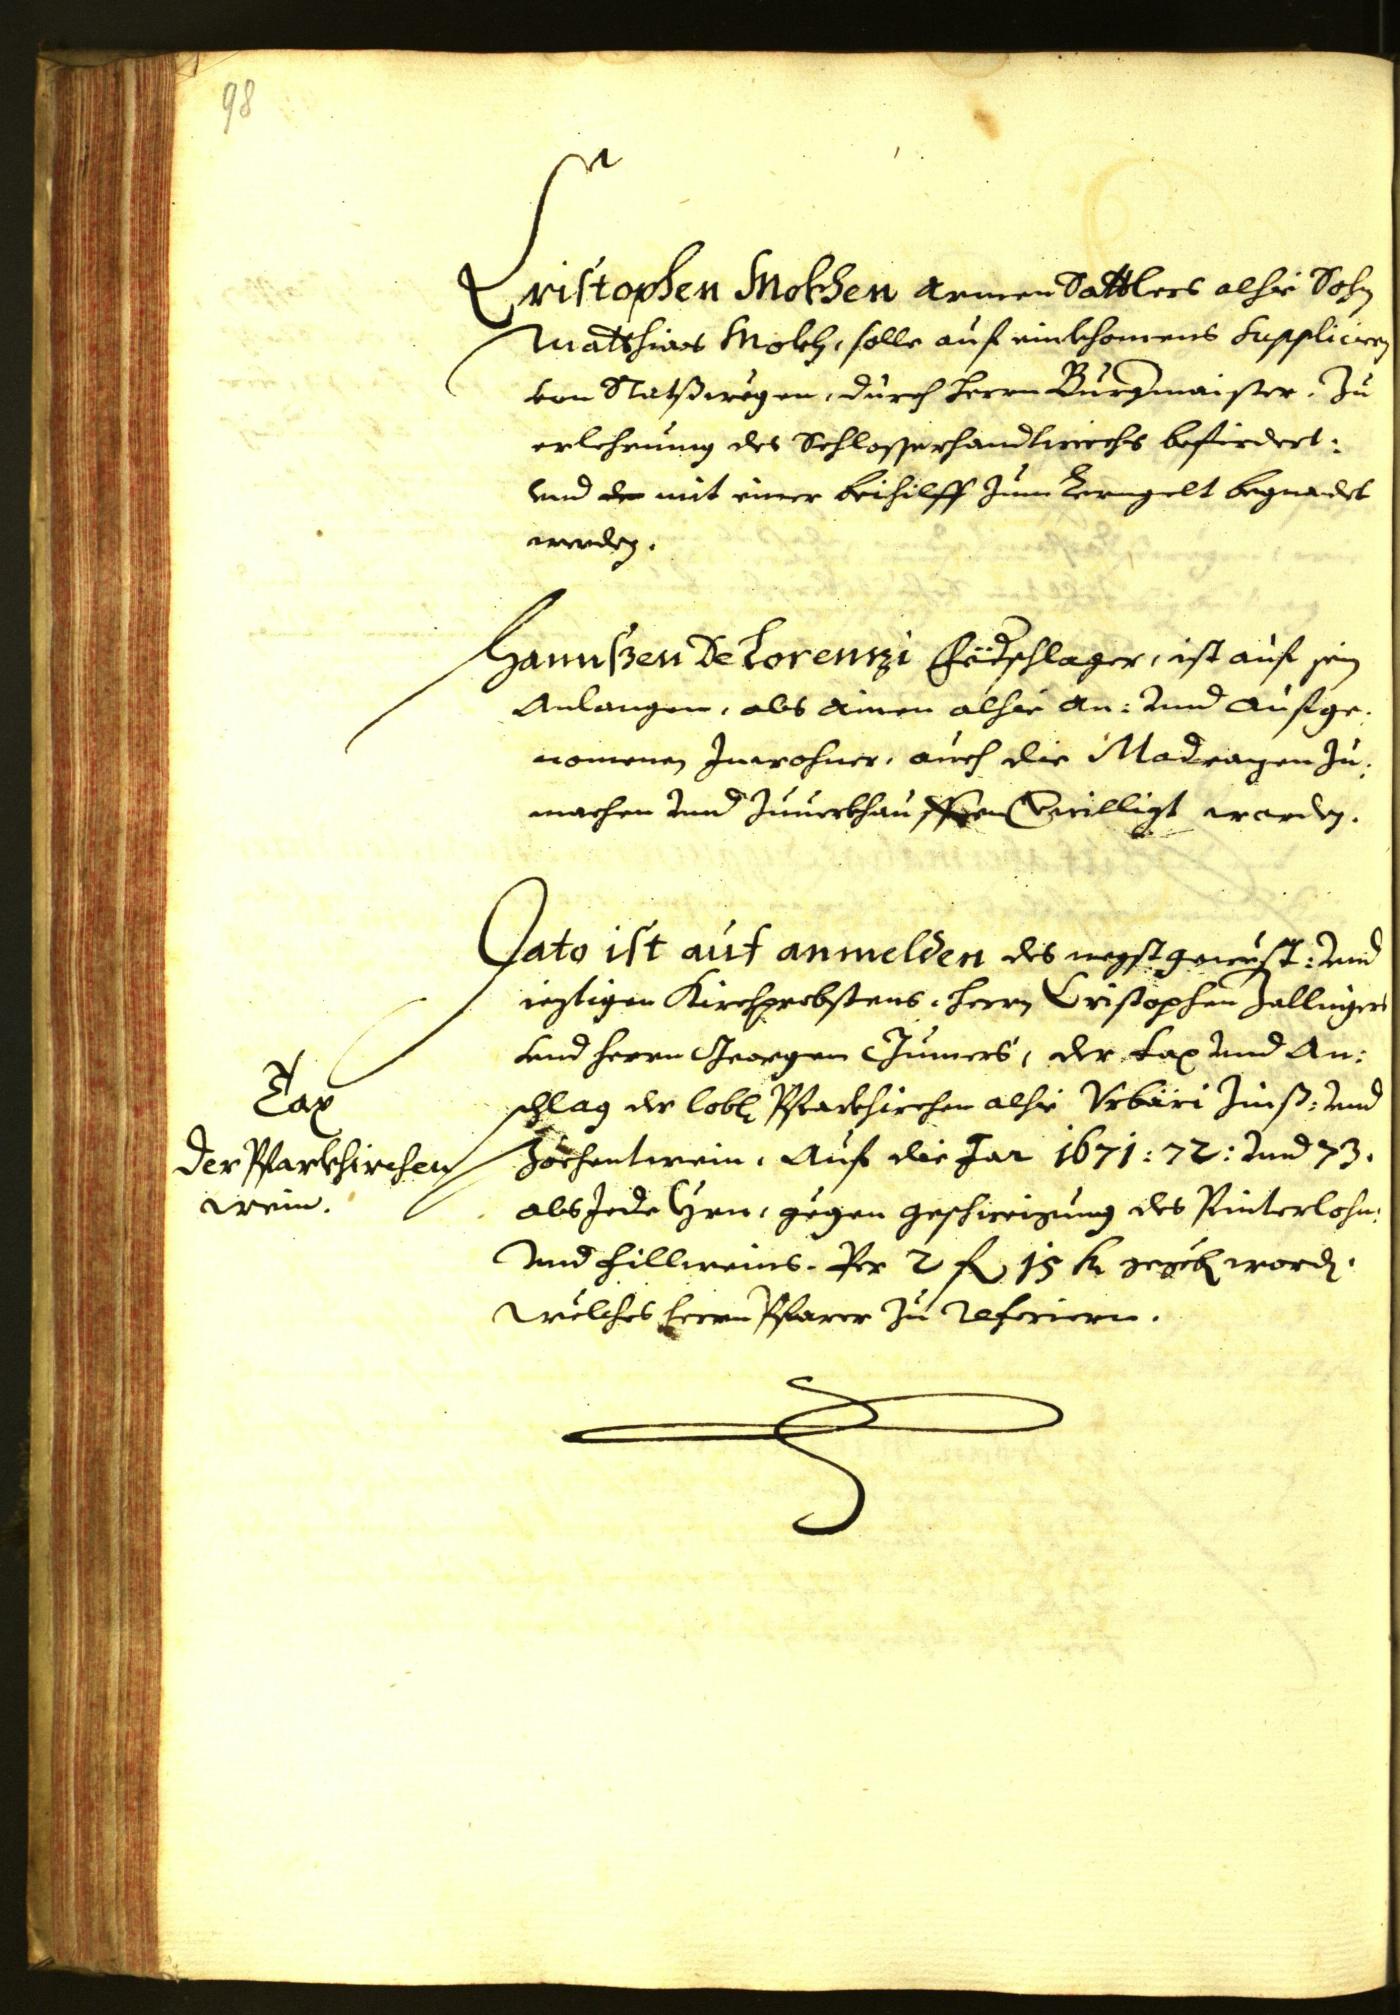 98
Cristophen Molchen armen Sattlers alhie Sohn
Matthias Molch, solle auf einkhomens Suppliciren
von Statßwegen, durch herrn Burgmaister, zu
erlehrnung des Schlosserhandtwerchs befirdert:
und mit einer beihilff zum Lerngelt begnadet
werden.
Hannßen De Lorenzi Föderschlager, ist auf sein
Anlangen, als ainen alhie an: und aufge:
nomenen Inwohner, auch die Madrazen zu:
machen und zuverkhauffen bewilligt worden.
Dato ist auf anmelden des negstgewest: und
ieztigen Kirchprobstens, herrn Cristophen Zallingers
und herrn Georgen Jumers, der tax und An:
schlag der lobl Pfarkhirchen alhie Urbari Zinß: und
Zöchentwein, Auf die Jar 1671: 72: und 73.
als Jede Yrn, gegen geschweigung des Pinterlohn:
und fillweins. Per 2 fl 15 kr gegeben worden.
welches herrn Pfarer zu referiern.
Tax
der Pfarkhirchen
wein.